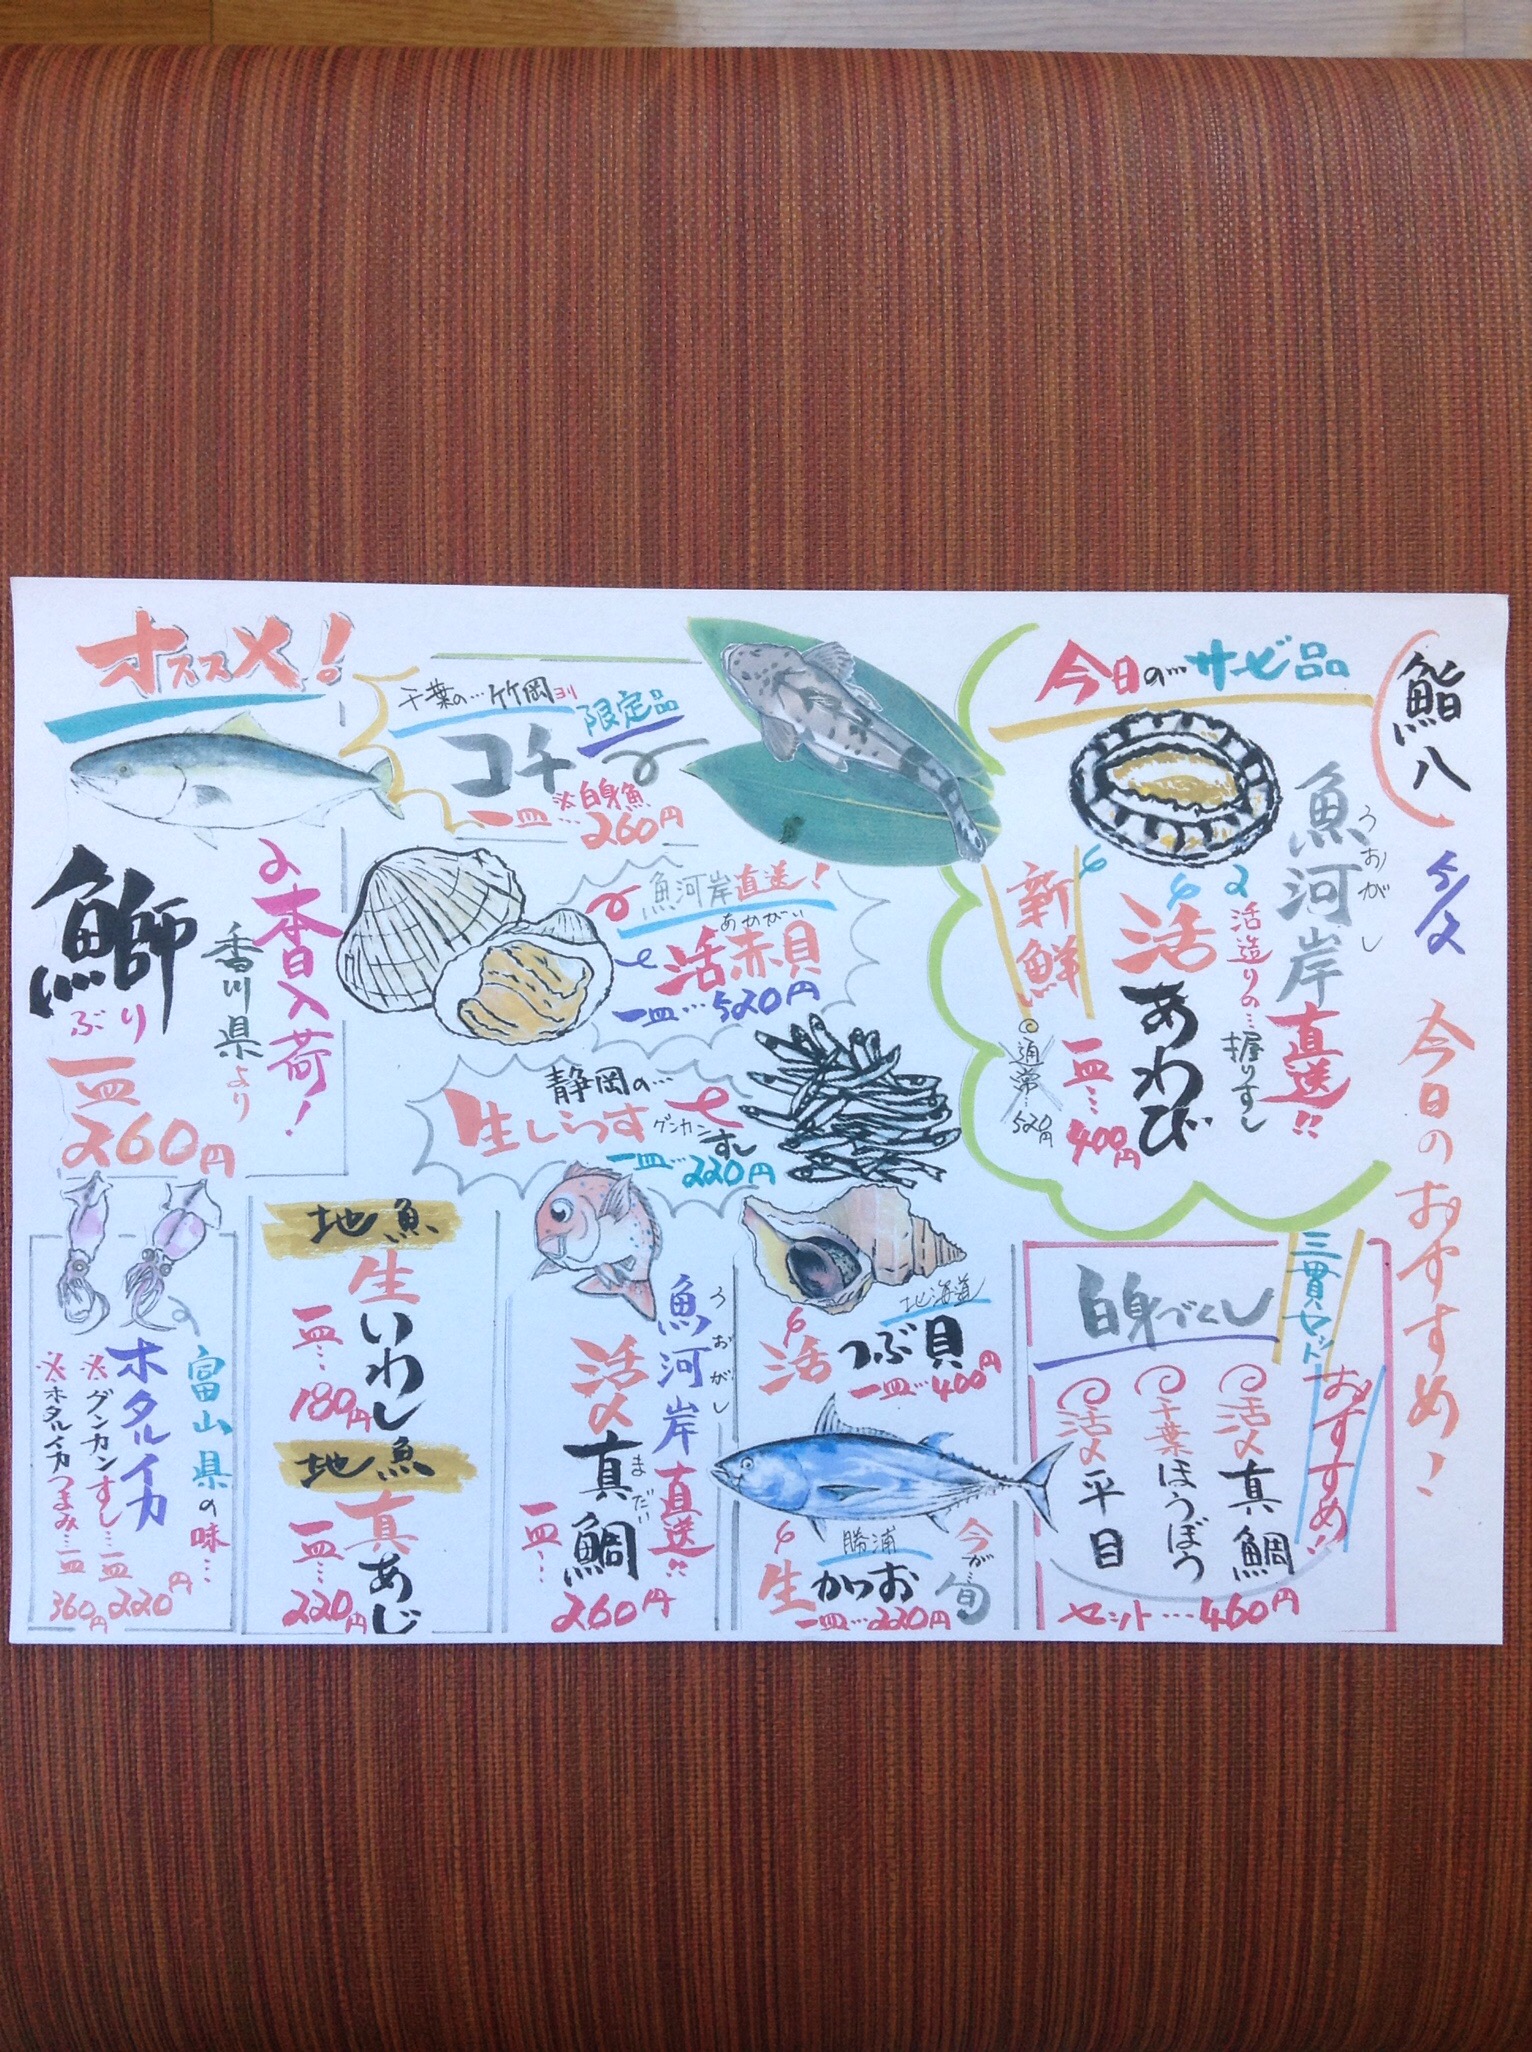 鮨八
5/2
今日のおすすめ！
今日の…サービス品
魚河岸直送!!
うおがし
活造りの…握りすし
活あわび
新鮮
一皿…400円
通常…520円
千葉の…竹岡ヨリ
限定品
コチ
※白身魚
一皿…260円
魚河岸直送！
あかがい
活赤貝
一皿…520円
静岡の…
生しらす
グンカンすし
一皿…220円
オススメ！
本日入荷！
香川県より
鰤
ぶり
一皿
260円
三貫セット
おすすめ!!
白身づくし
活〆真鯛
千葉ほうぼう
活〆平目
セット…460円
北海道
活つぶ貝
一皿…400円
今が…旬
勝浦
生かつお
一皿…220円
魚河岸直送!!
うおがし
活〆真鯛
まだい
一皿…
260円
地魚
生いわし
一皿…
180円
地魚
真あじ
一皿…
220円
富山県の味…
ホタルイカ
※グンカンすし…一皿
220円
※ホタルイカつまみ…一皿
360円